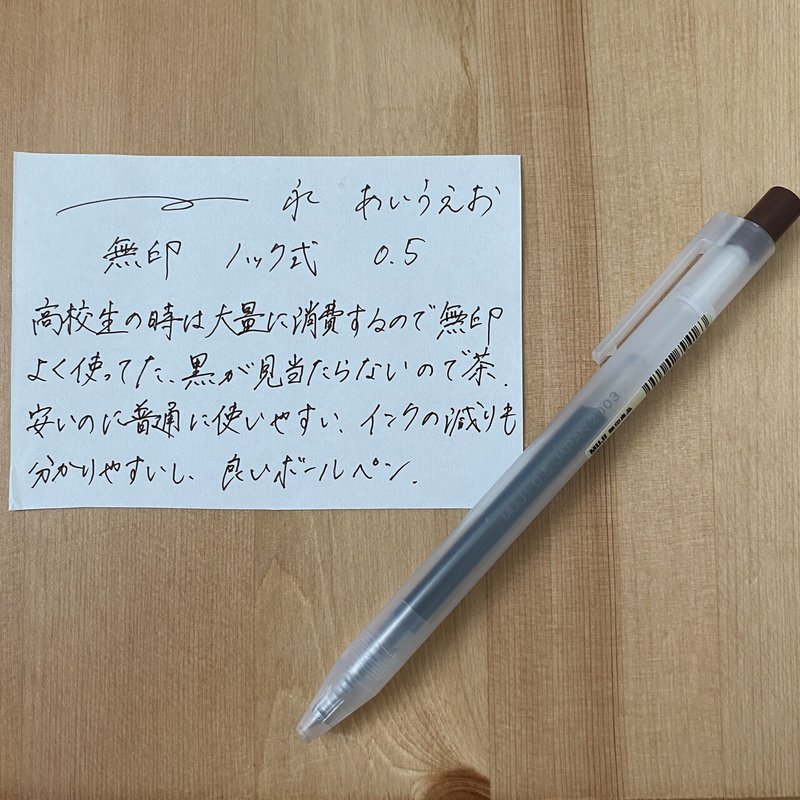 永 あいうえお
無印 ノック式 0.5
高校生の時は大量に消費するので無印
よく使ってた、黒が見当たらないので茶.
安いのに普通に使いやすい、インクの減りも
分かりやすいし、良いボールペン.
MUJI 0.5 JAPAN 2003
MUJI 無印良品